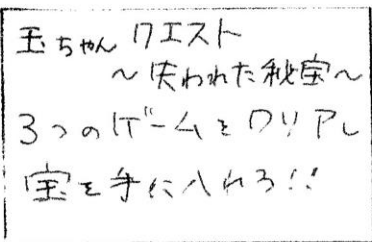 玉ちゃんクエスト
～失われた秘宝～
3つのゲームをクリアし
宝を手に入れろ!!